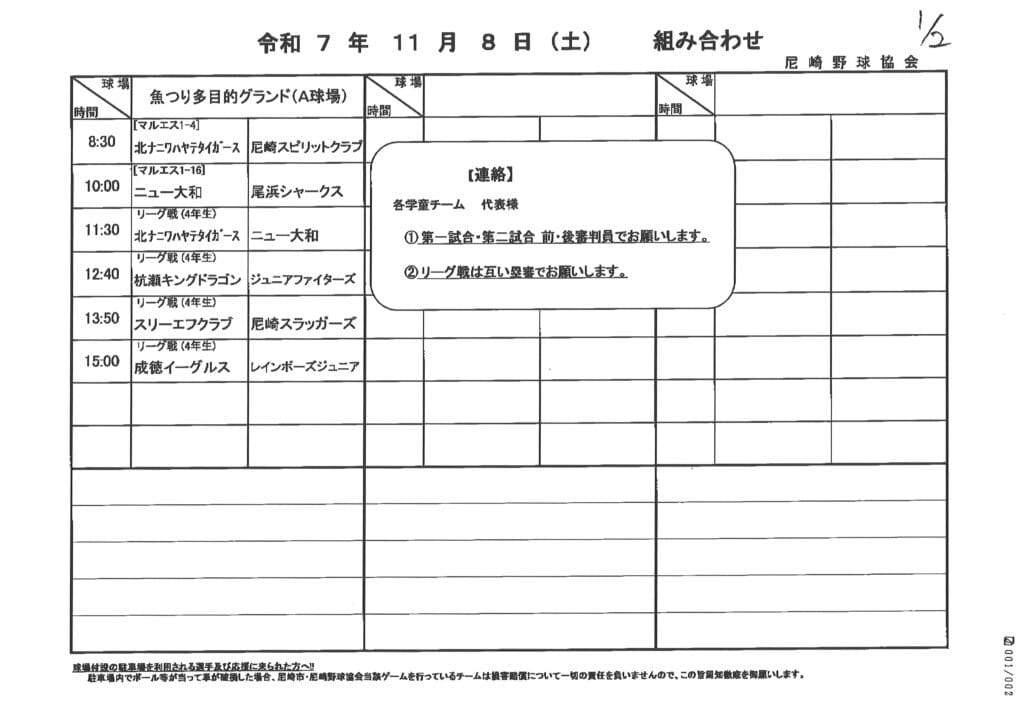 令和 7 年 11 月 8 日 (土) 組み合わせ
1/2
尼崎野球協会
球場
時間
魚つり多目的グランド(A球場)
球場
時間
球場
時間
8:30
[マルエス1-4]
北ナニワハヤテタイガース 尼崎スピリットクラブ
10:00
[マルエス1-16]
ニュー大和 尾浜シャークス
11:30
リーグ戦(4年生)
北ナニワハヤテタイガース ニュー大和
12:40
リーグ戦(4年生)
杭瀬キングドラゴン ジュニアファイターズ
13:50
リーグ戦(4年生)
スリーエフクラブ 尼崎スラッガーズ
15:00
リーグ戦(4年生)
成徳イーグルス レインボーズジュニア
【連絡】
各学童チーム 代表様
①第一試合・第二試合 前・後審判員でお願いします。
②リーグ戦は互い塁審でお願いします。
球場付設の駐車場を利用される選手及び応援に来られた方へ!!
駐車場内でボール等が当って車が破損した場合、尼崎市・尼崎野球協会当該ゲームを行っているチームは損害賠償について一切の責任を負いませんので、この旨周知徹底を御願いします。
001/002